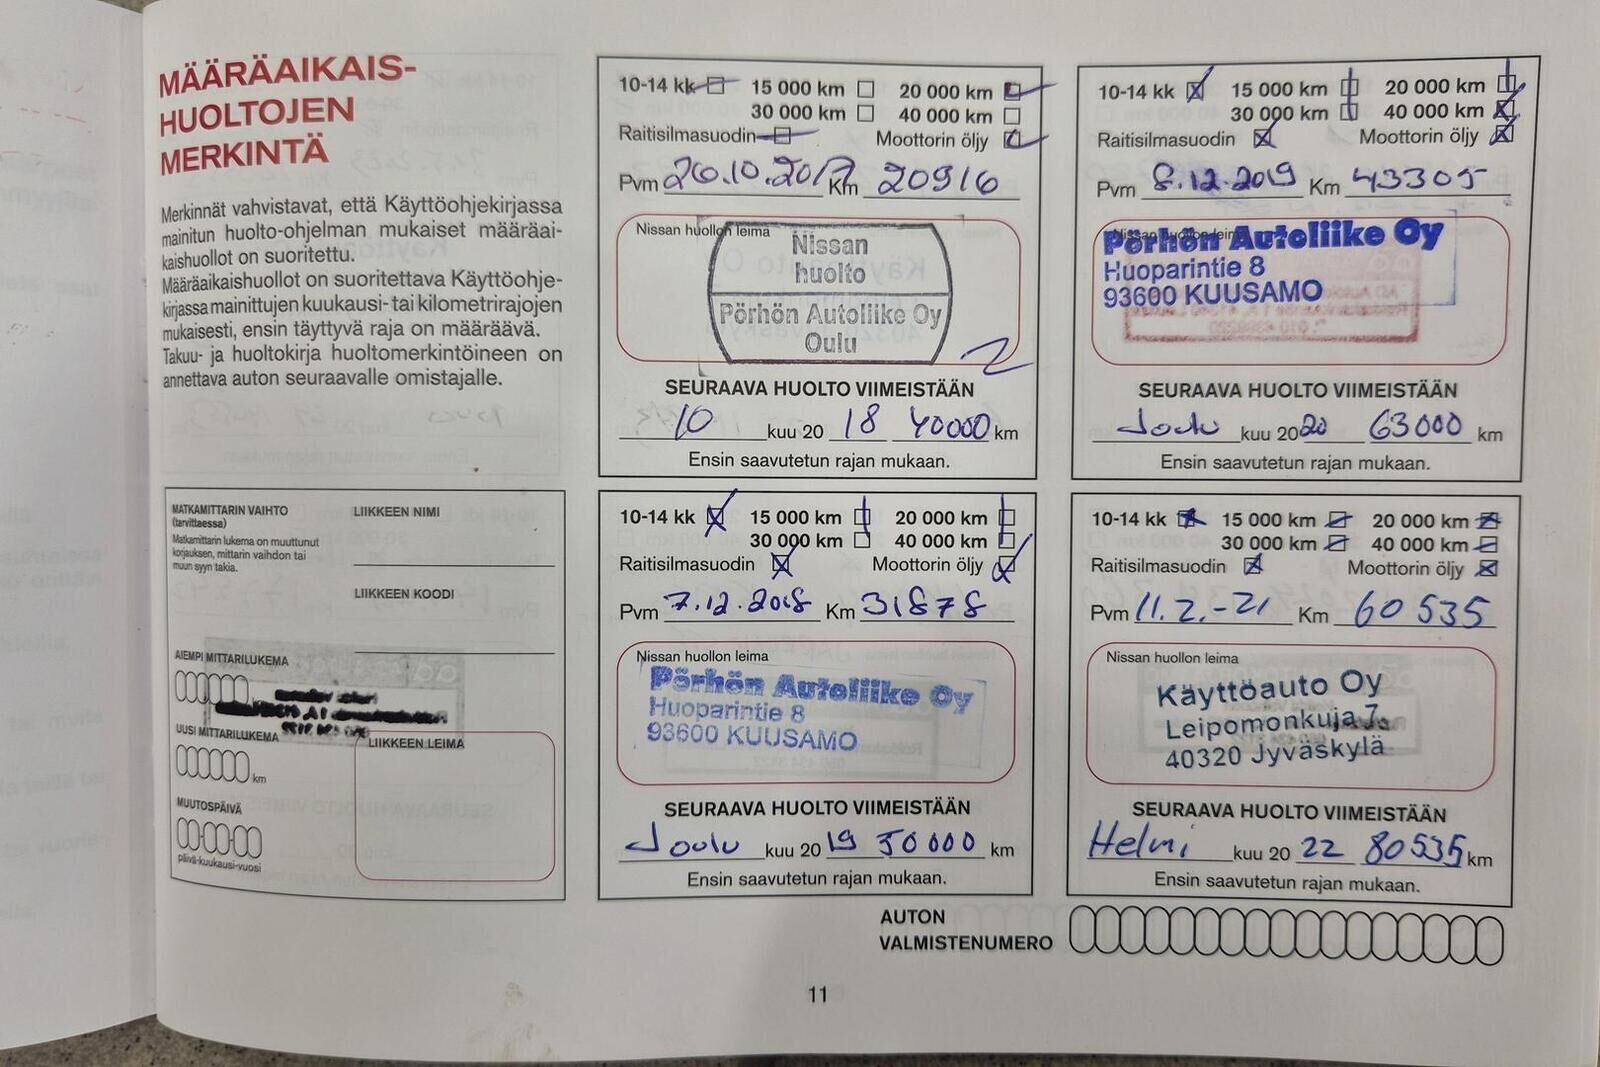 MÄÄRÄAIKAIS-
HUOLTOJEN
MERKINTÄ
Merkinnät vahvistavat, että Käyttöohjekirjassa
mainitun huolto-ohjelman mukaiset määräai-
kaishuollot on suoritettu.
Määräaikaishuollot on suoritettava Käyttöohje-
kirjassa mainittujen kuukausi- tai kilometrirajojen
mukaisesti, ensin täyttyvä raja on määräävä.
Takuu- ja huoltokirja huoltomerkintöineen on
annettava auton seuraavalle omistajalle.
MATKAMITTARIN VAIHTO
(tarvittaessa)
Matkamittarin lukema on muuttunut
korjauksen, mittarin vaihdon tai
muun syyn takia.
LIIKKEEN NIMI
LIIKKEEN KOODI
AIEMPI MITTARILUKEMA
UUSI MITTARILUKEMA
km
LIIKKEEN LEIMA
MUUTOSPÄIVÄ
päivä-kuukausi-vuosi
10-14 kk 15 000 km 20 000 km
30 000 km 40 000 km
Raitisilmasuodin Moottorin öljy
Pvm 26.10.2017 Km 20916
Nissan huollon leima
Nissan
huolto
Pörhön Autoliike Oy
Oulu
SEURAAVA HUOLTO VIIMEISTÄÄN
10 kuu 20 18 40000 km
Ensin saavutetun rajan mukaan.
10-14 kk 15 000 km 20 000 km
30 000 km 40 000 km
Raitisilmasuodin Moottorin öljy
Pvm 8.12.2019 Km 43305
Nissan huollon leima
Pörhön Autoliike Oy
Huoparintie 8
93600 KUUSAMO
SEURAAVA HUOLTO VIIMEISTÄÄN
Joulu kuu 2020 63000 km
Ensin saavutetun rajan mukaan.
10-14 kk 15 000 km 20 000 km
30 000 km 40 000 km
Raitisilmasuodin Moottorin öljy
Pvm 7.12.2018 Km 31878
Nissan huollon leima
Pörhön Autoliike Oy
Huoparintie 8
93600 KUUSAMO
SEURAAVA HUOLTO VIIMEISTÄÄN
Joulu kuu 20 19 50000 km
Ensin saavutetun rajan mukaan.
10-14 kk 15 000 km 20 000 km
30 000 km 40 000 km
Raitisilmasuodin Moottorin öljy
Pvm 11.2.-21 Km 60 535
Nissan huollon leima
Käyttöauto Oy
Leipomonkuja 7
40320 Jyväskylä
SEURAAVA HUOLTO VIIMEISTÄÄN
Helmi kuu 20 22 80535 km
Ensin saavutetun rajan mukaan.
AUTON
VALMISTENUMERO
11